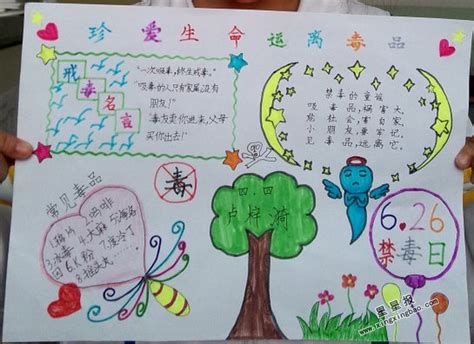 珍爱生命运离毒品
戒毒名言
"一次吸毒,终生戒毒。"
"吸毒的人只有家属,没有
朋友!"
"毒友卖你进来,父母
买你出去!"
禁毒的童谣
吸毒品,祸害大,
危社会,害自家,
小朋友,要牢记,
见毒品,远离它。
常见毒品
1.鸦片 2.吗啡
3.冰毒 4.大麻
6.K粉
8.摇头丸
毒
四.四
卢梓漪
6.26
禁毒日
星星报
www.xingxingbao.com